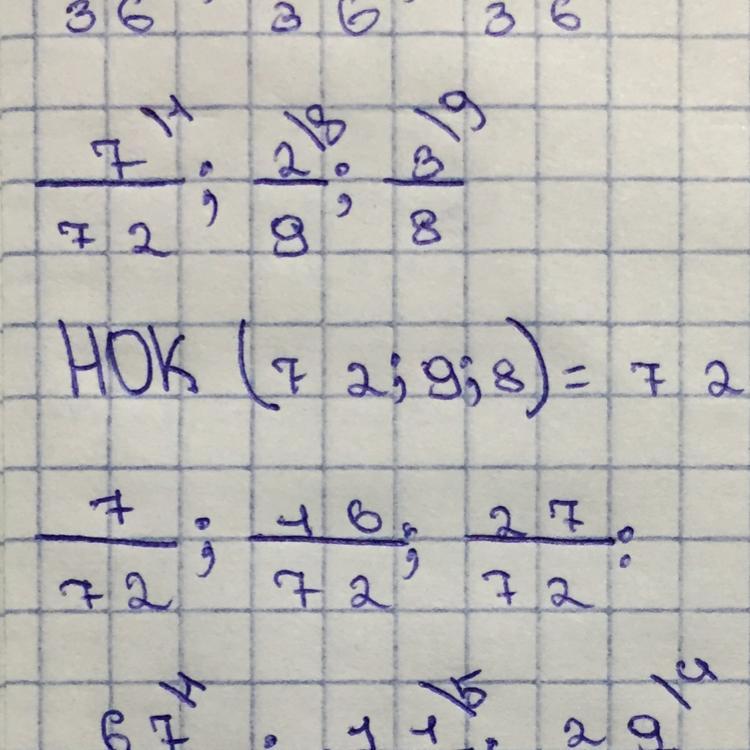 36 36 36
7\1/72 ; 2\8/9 ; 3\9/8
НОК (72; 9; 8) = 72
7/72 ; 16/72 ; 27/72 :
67 ; 11 ; 29